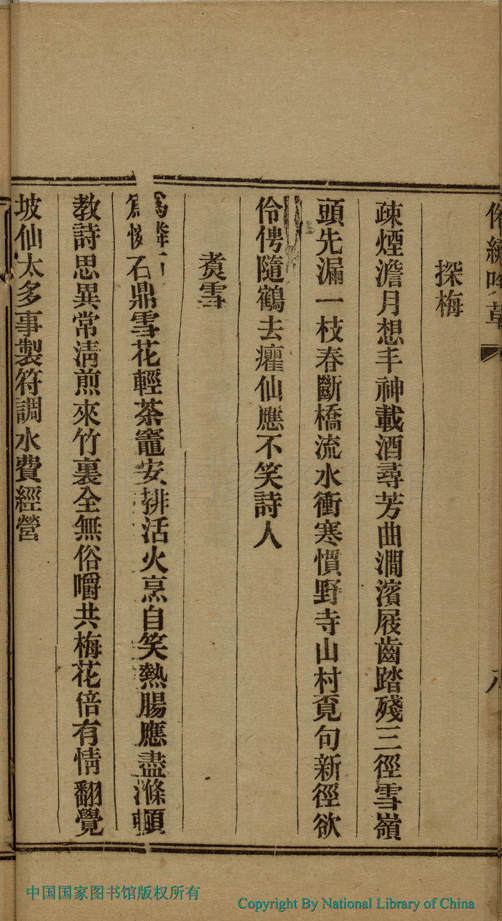 吟草
探梅
疎煙澹月想丰神載酒尋芳曲澗濱屐齒踏殘三徑雪嶺
頭先漏一枝春斷橋流水衝寒慣野寺山村覓句新徑欲
伶俜隨鶴去癯仙應不笑詩人
煑雪
石鼎雪花輕茶竈安排活火烹自笑熱腸應盡滌頓
教詩思異常淸煎來竹裏全無俗嚼共梅花倍有情翻覺
坡仙太多事製符調水費經營
八
中国国家图书馆版权所有
Copyright By National Library of China